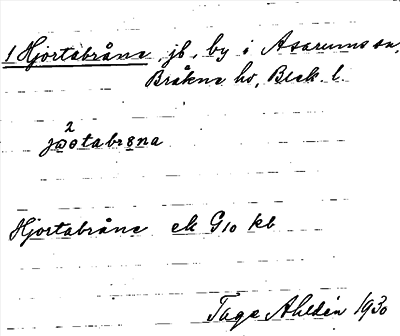 1 Hjortabråne, jb, by i Asarums sn,
Bräkne hd, Blek. l.
2
jωotabrɑna
Hjortabråne ek G10 kb
Tage Ahldén 1930